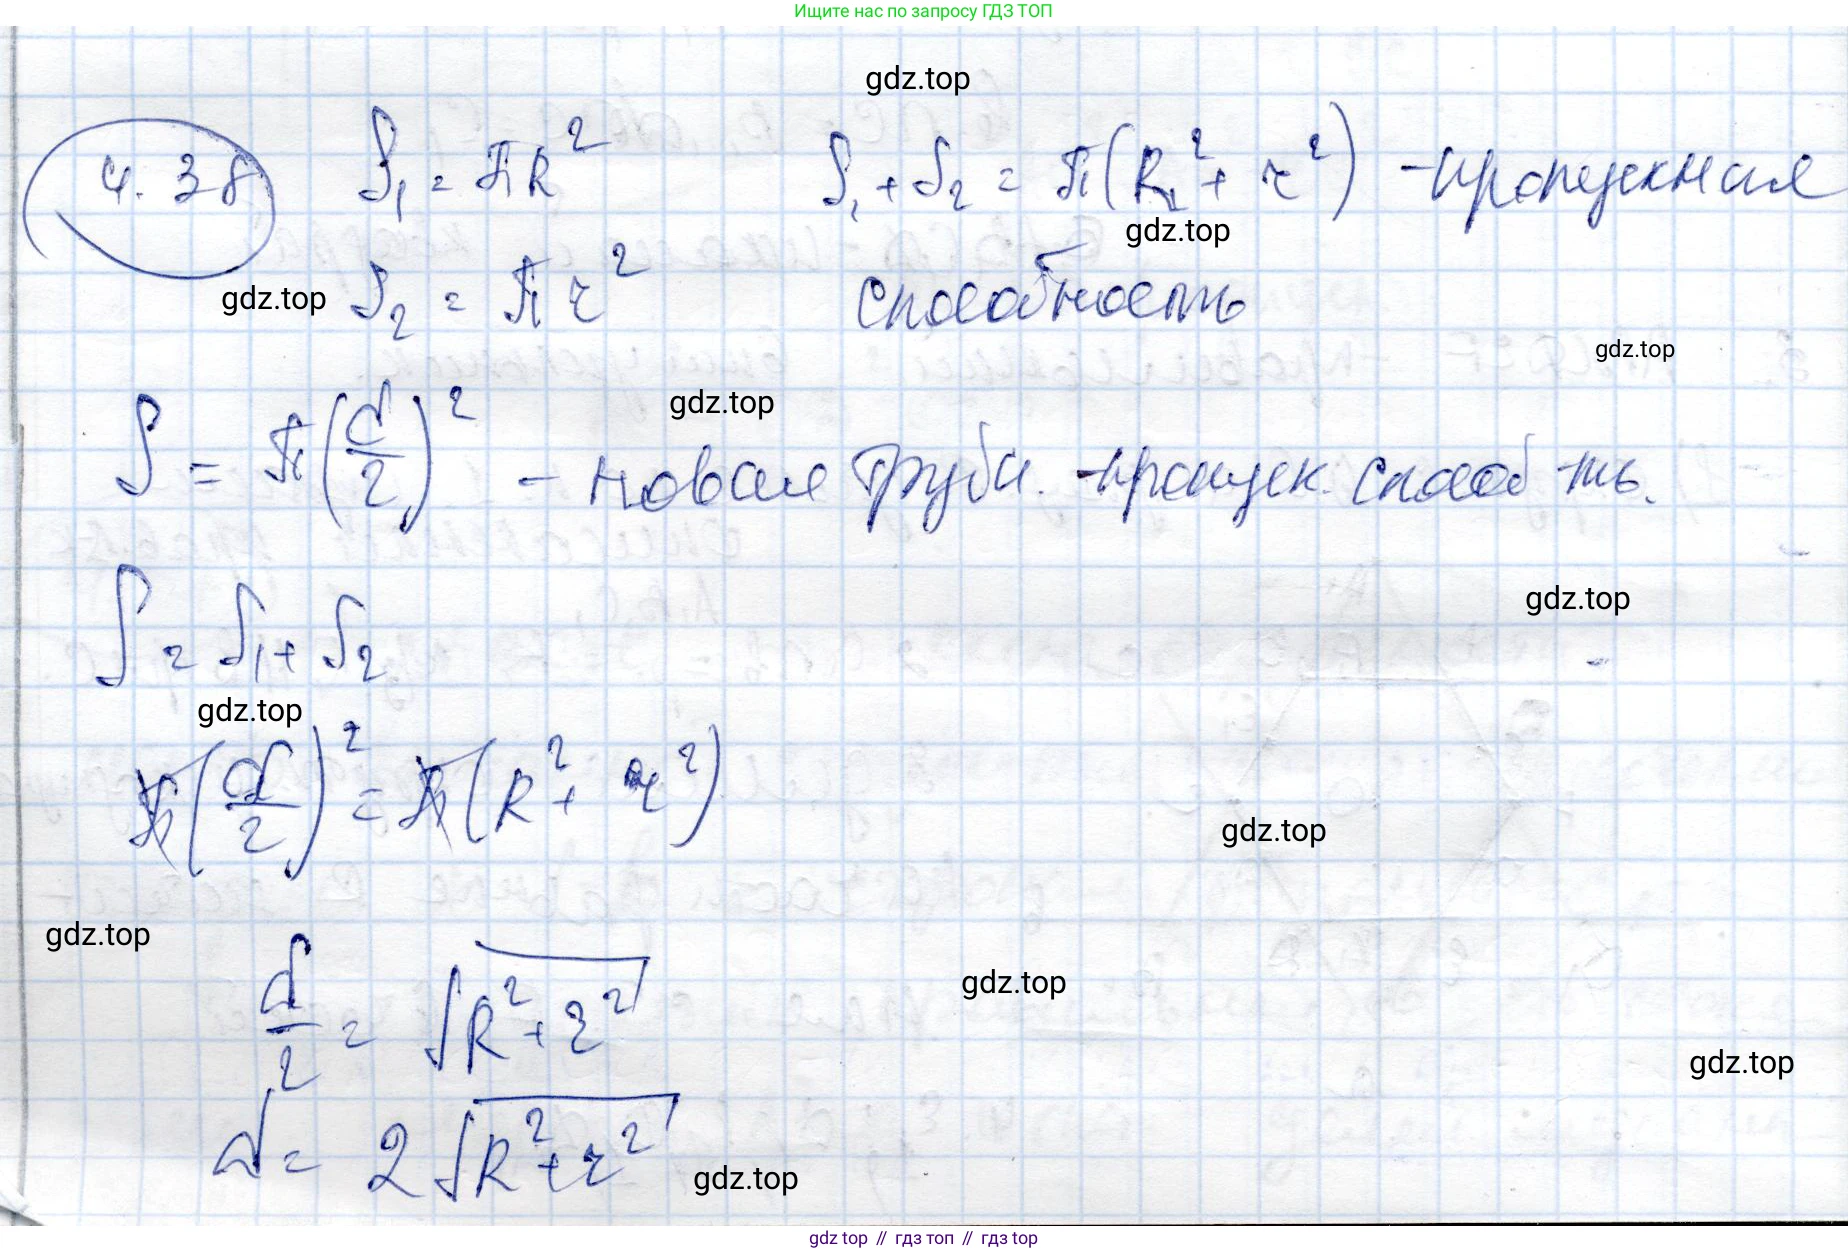 Ищите нас по запросу ГДЗ ТОП
gdz.top
4.38 S₁ = πR² S₁ + S₂ = π(R₁² + r²) - пропускная
gdz.top
S₂ = πr² способность
gdz.top
gdz.top
gdz.top
S = π(d/2)² - новая труба. - пропуск. способ-ть.
gdz.top
S = S₁ + S₂
gdz.top
π(d/2)² = π(R² + r²)
gdz.top
gdz.top
d/2 = √R² + r²
gdz.top
gdz.top
d = 2√R² + r²
gdz.top
gdz top // гдз топ // гдз top